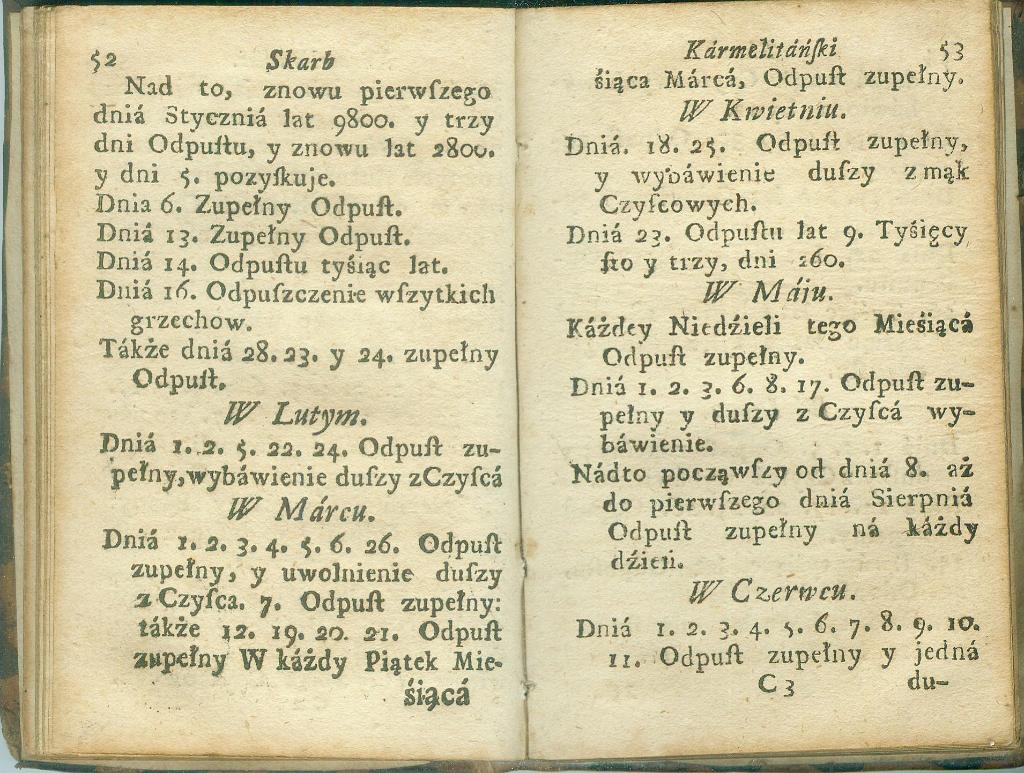 52 Skarb
Nad to, znowu pierwſzego
dniá Styczniá lat 9800. y trzy
dni Odpuſtu, y znowu lat 2800.
y dni 5. pozyſkuje.
Dnia 6. Zupełny Odpuſt.
Dniá 13. Zupełny Odpuſt.
Dniá 14. Odpuſtu tyśiąc lat.
Dniá 16. Odpuſzczenie wſzytkich
grzechow.
Tákże dniá 28. 23. y 24. zupełny
Odpuſt.
W Lutym.
Dniá 1. 2. 5. 22. 24. Odpuſt zu-
pełny, wybáwienie duſzy z Czyſcá
W Márcu.
Dniá 1. 2. 3. 4. 5. 6. 26. Odpuſt
zupełny, y uwolnienie duſzy
z Czyſca. 7. Odpuſt zupełny:
tákże 12. 19. 20. 21. Odpuſt
zupełny W káżdy Piątek Mie-
śiącá
Kármelitáńſki 53
śiąca Márcá, Odpuſt zupełny.
W Kwietniu.
Dniá. 18. 25. Odpuſt zupełny,
y wybáwienie duſzy z mąk
Czyſcowych.
Dniá 23. Odpuſtu lat 9. Tyśięcy
ſto y trzy, dni 260.
W Máju.
Káżdey Niedźieli tego Mieśiącá
Odpuſt zupełny.
Dniá 1. 2. 3. 6. 8. 17. Odpuſt zu-
pełny y duſzy z Czyſcá wy-
báwienie.
Nádto począwſzy od dniá 8. aż
do pierwſzego dniá Sierpniá
Odpuſt zupełny ná káżdy
dźień.
W Czerwcu.
Dniá 1. 2. 3. 4. 5. 6. 7. 8. 9. 10.
11. Odpuſt zupełny y jedná
C 3 du-